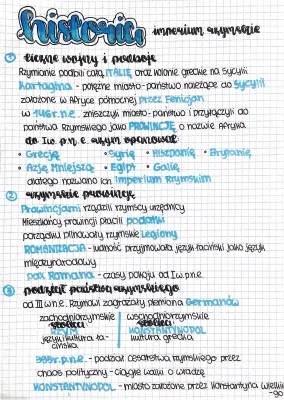 historia imperium rzymskie
1 liczne wojny i podboje
Rzymianie podbili całą ITALIĘ oraz kolonie greckie na Sycylii
Kartagina - potężne miasto-państwo należące do Sycylii
założone w Afryce północnej przez Fenicjan
w 146r. n.e. zniszczyli miasto-państwo i przyłączyli do
państwa rzymskiego jako PROWINCJĘ o nazwie Afryka
do I w. p.n.e. rzym opanował:
• Grecję • Syrię • Hiszpanię • Brytanię
• Azję Mniejszą • Egipt • Galię
dlatego nazwano ich Imperium Rzymskim
2 rzymskie prowincje
Prowincjami rządzili rzymscy urzędnicy
Mieszkańcy prowincji płacili podatki
porządku pilnowały rzymskie Legiony
ROMANIZACJA - ludność przyjmowała język łaciński jako język
międzynarodowy
pax Romana - czasy pokoju od I w. p.n.e.
3 podział państwa rzymskiego
od III w n.e. Rzymowi zagrażały plemiona Germanów
zachodniorzymskie wschodniorzymskie
stolica stolica
RZYM KONSTANTYNOPOL
język i kultura ła- kultura grecka
cińska
395r. p.n.e. - podział cesarstwa rzymskiego przez
chaos polityczny - ciągłe walki o władzę
KONSTANTYNOPOL - miasto założone przez Konstantyna Wielkie
-go